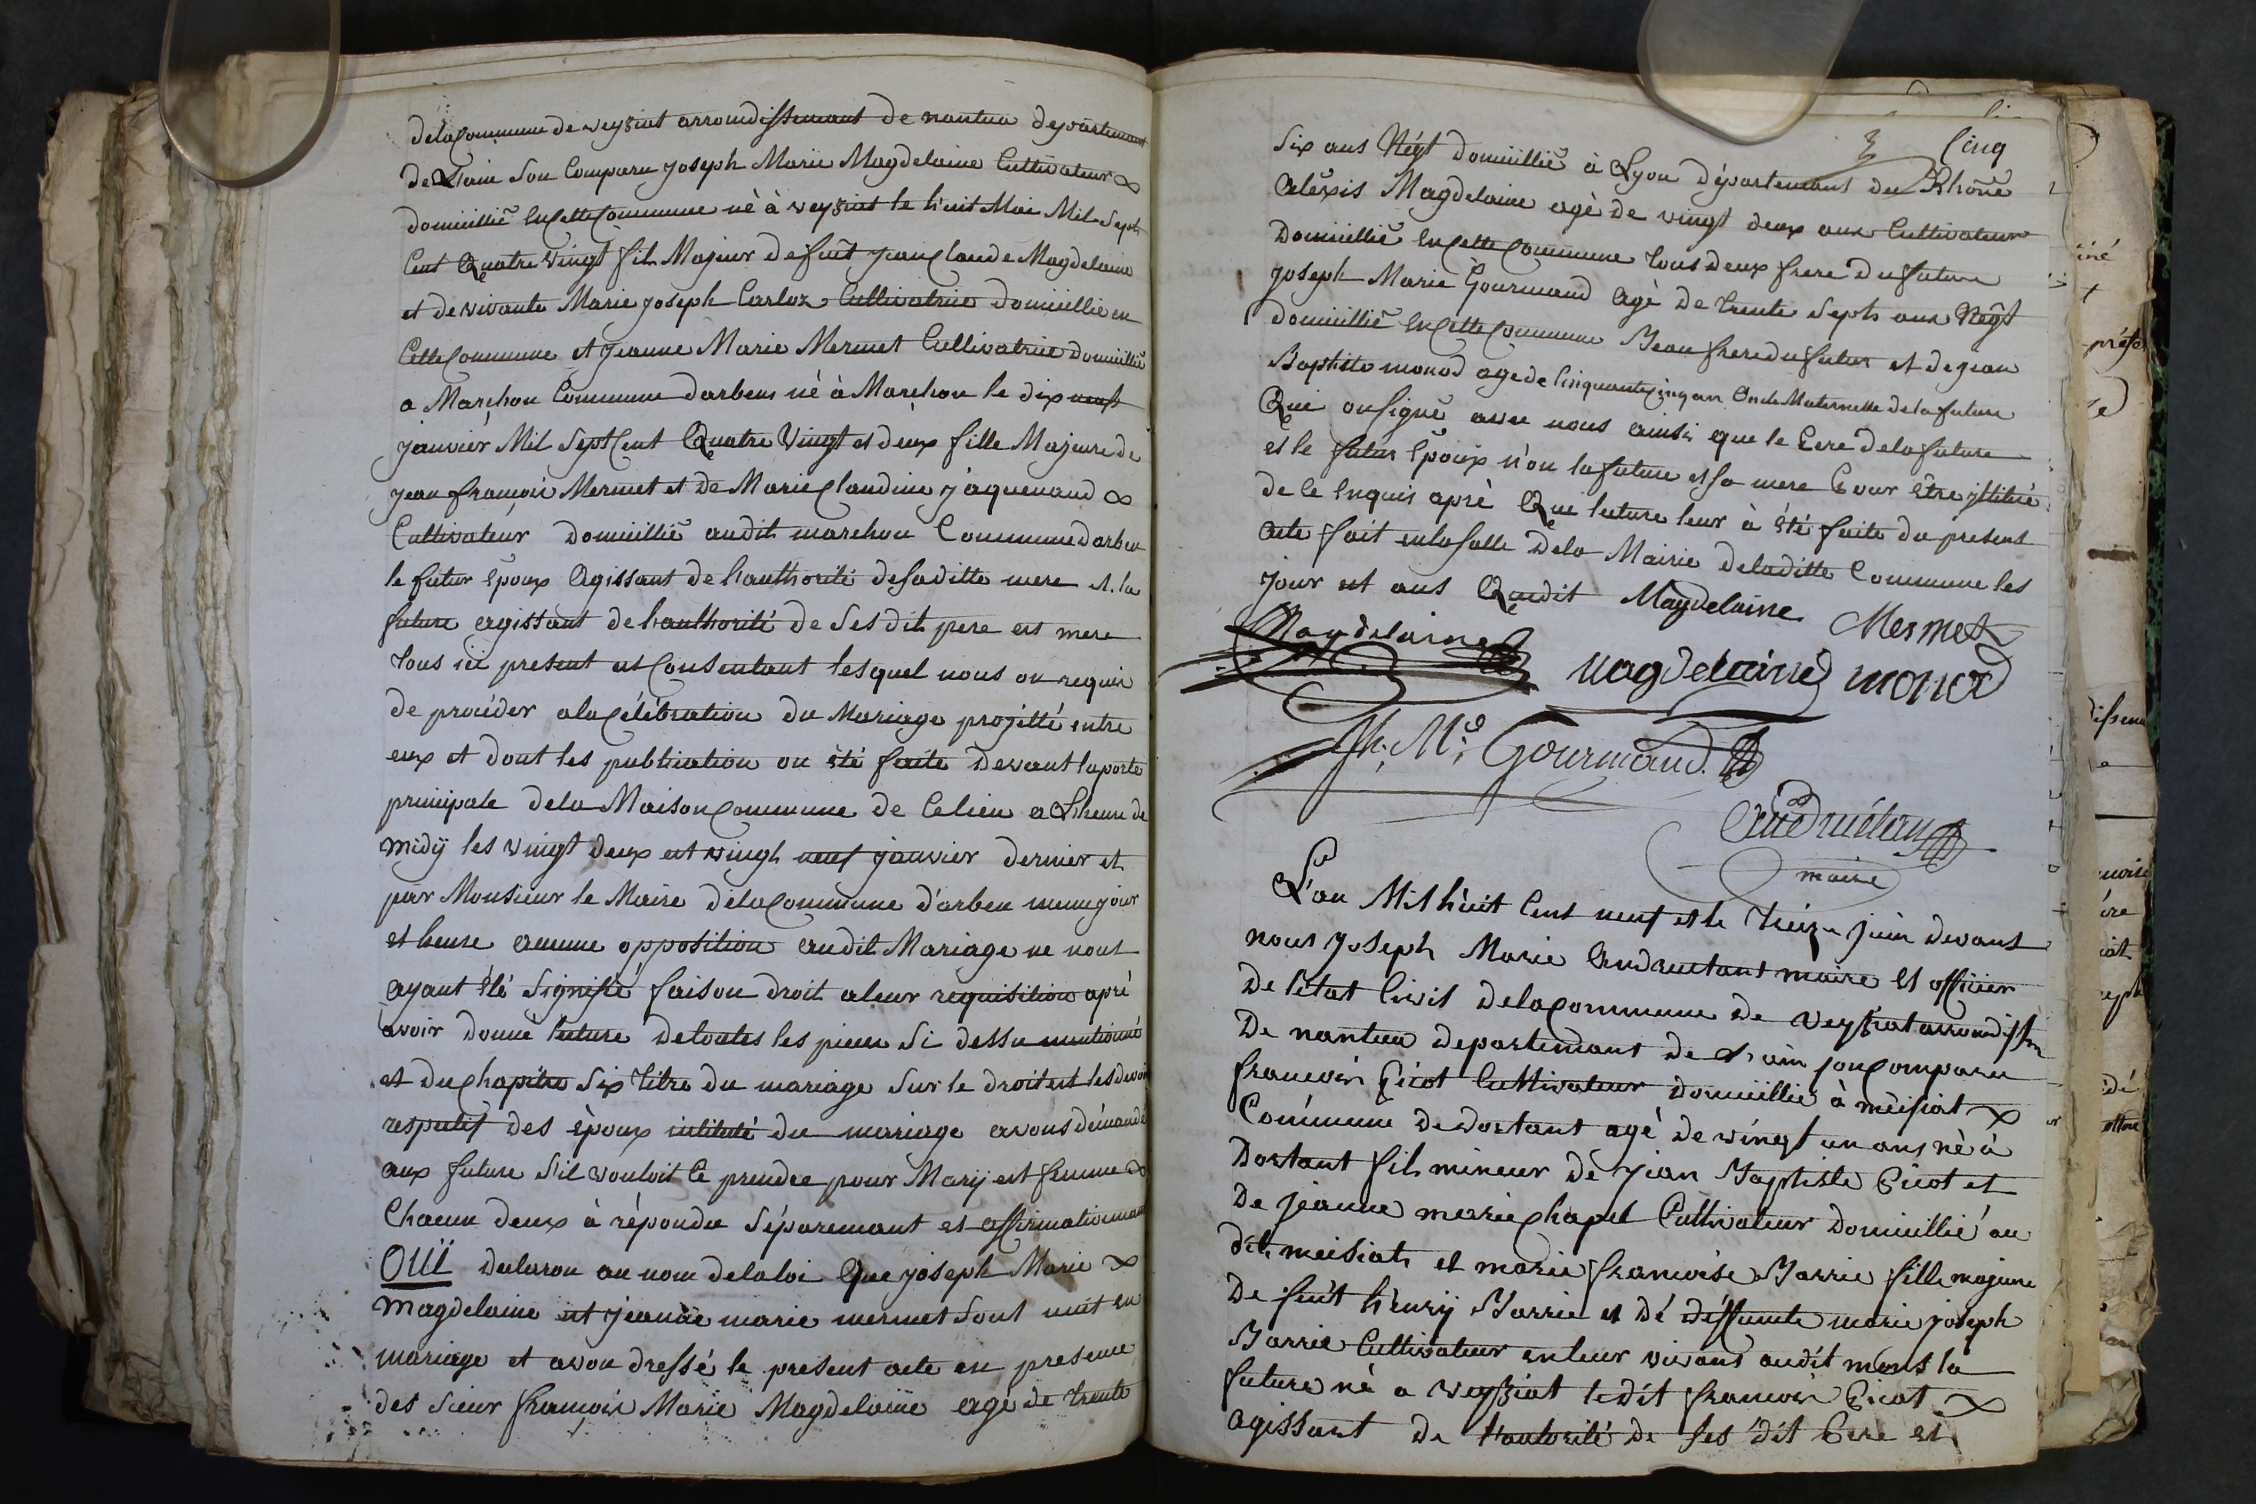 delaCommune de veyziat arrondissemant de nantua departemant
de Lain son Comparu joseph Marie Magdelaine Cultivateur
domicillié en CetteCommune né à veyziat le huit Mai Mil Sept
Cent Quatre Vingt fils Majeur de fut jean Claude Magdelaine
et de vivante Marie joseph Carloz Cultivatrice domicillié en
CetteCommune et jeanne Marie Mermet Cultivatrice domicillié
a Marchon Commune darbens né à Marchon le dix neuf
janvier Mil Sept Cent Quatre Vingt et deux fille Majeure de
jean françois Mermet et de Marie Claudine jaquenaud
Cultivateur domicillié audit marchon Commune darben
le futur Epoux Agissant de hauthorité de saditte mere et la
future agissant de hauthorité de Ses dit pere et mere
tous ici present et Consentant lesquel nous on requis
de procéder ala Célébration du Mariage projetté entre
eux et dont les publication on été faite devant la porte
principale dela Maison Commune de Celieu a Lheure de
midÿ les vingt deux et vingt neuf janvier dernier et
par Monsieur le Maire delaCommune d'arben meme jour
et heure aucune opposition audit Mariage ne nous
ayant été Signifié faison droit aleur requisition apré
avoir donné lecture detoutes les pieces Si dessu mentionné
et du chapitre Six titre du mariage Sur le droit et les devoir
respectif des époux intitulé du mariage avons démandé
aux future S'il vouloit Ce prendre pour Marÿ et femme
Chacun deux à répondu Séparemant et affirmativemant
OUÏ declaron au nom delaloi Que joseph Marie
Magdelaine et jeanne marie mermet Sont unit en
mariage et avon dressé le present acte en presence
des sieur françois Marie Magdelaine agé de trente
Cinq
Six ans Négt domicillié à Lyon départemant du Rhône
Aléxis Magdelaine agé de vingt deux ans Cultivateur
Domicillié en CetteCommune tous deux frere du future
joseph Marie Gourmand Agé de trente Sept ans Négt
domicillié en CetteCommune Beau frere du futur et de jean
Baptiste monod agé de Cinquante cinq an Oncle Maternelle dela future
Qui on signé avec nous ainsi que le Pere dela future
et le futur Epoux n'on la future et sa mere Pour être illitéré
de Ce Enquis apré Que lecture leur à été faite du present
acte fait en la salle dela Mairie deladitte Commune les
jour et ans Quedit Magdelaine Mermet
Magdelaine Magdelaine monod
Jh. Mie Gourmand
Andruétan
maire
L'an Mil huit Cent neuf et le treize juin devant
nous joseph Marie Andruetant maire Et officier
De létat Civil delacommune de veyziat arrondissem
De nantua departemant de L'ain son Comparu
francois Picot Cultivateur domicillié à meisiat
Commune de dortant agé de vingt un ans né à
Dortant fils mineur de jean Baptiste Picot et
De jeanne marie chapel Cultivateur domicillié au
dit meisiat et marie francoise Barrie fille majeure
De feut henrÿ Barrie et dé déffunte marie joseph
Barrie Cultivateur en leur vivant audit mons la
future né a veyziat ledit francois Picot
agissant de Lautorité de Ses dit Pere et